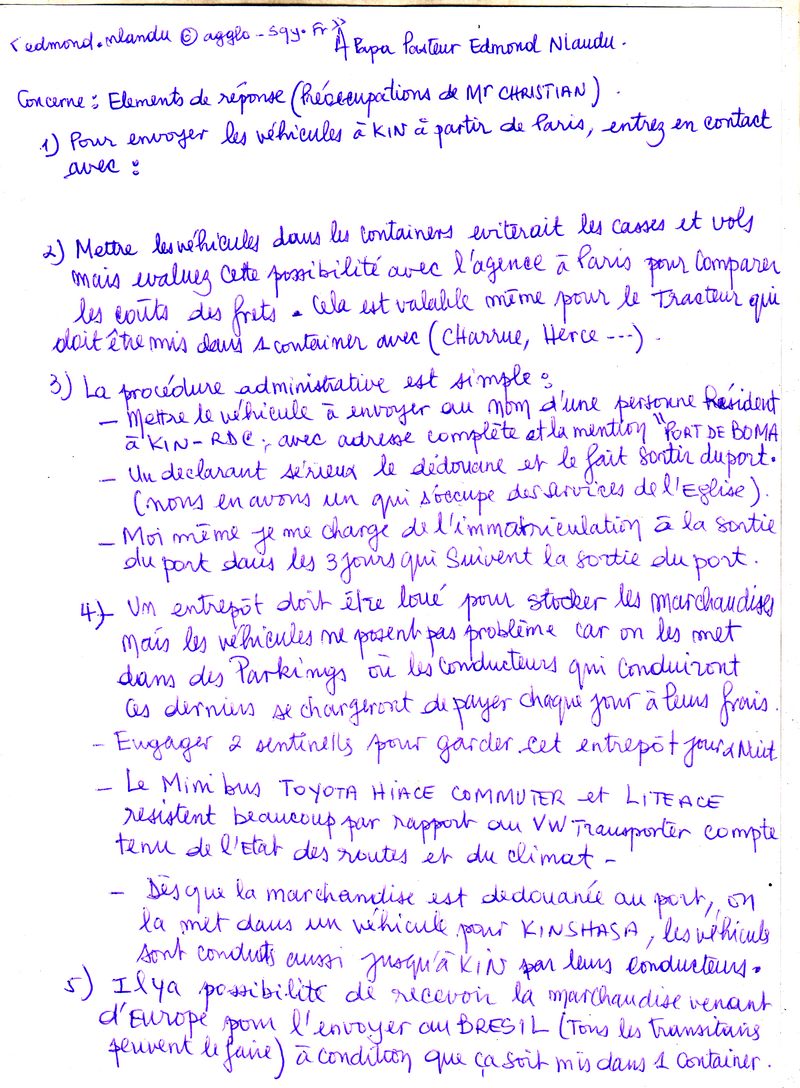 <edmond.nlandu @ agglo-sqy.Fr>
À Papa Pasteur Edmond Nlandu.
Concerne : Elements de réponse (Préoccupations de Mr CHRISTIAN).
1) Pour envoyer les véhicules à KIN à partir de Paris, entrez en contact
avec :
2) Mettre les véhicules dans les containers eviterait les casses et vols
mais evaluez cette possibilité avec l'agence à Paris pour comparer
les coûts des frets. Cela est valable même pour le Tracteur qui
doit être mis dans 1 container avec (CHarrue, Herce ---).
3) La procédure administrative est simple :
– Mettre le véhicule à envoyer au nom d'une personne Résident
à KIN-RDC, avec adresse complète et la mention "PORT DE BOMA
– Un declarant sérieux le dédouane et le fait sortir du port.
(nous en avons un qui s'occupe des services de l'Eglise).
– Moi même je me charge de l'immatriculation à la sortie
du port dans les 3 jours qui suivent la sortie du port.
4)– Un entrepôt doit être loué pour stocker les marchandises
mais les véhicules ne posent pas problème car on les met
dans des Parkings où les conducteurs qui conduiront
ces derniers se chargeront de payer chaque jour à leurs frais.
– Engager 2 sentinells pour garder cet entrepôt jour & Nuit
– Le Minibus TOYOTA HIACE COMMUTER et LITEACE
resistent beaucoup par rapport au VW Transporter compte
tenu de l'Etat des routes et du climat –
– Dès que la marchandise est dedouanée au port, on
la met dans un véhicule pour KINSHASA, les véhicules
sont conduits aussi jusqu'à KIN par leurs conducteurs.
5) Il ya possibilité de recevoir la marchandise venant
d'Europe pour l'envoyer au BRESIL (Tous les transitaires
peuvent le faire) à condition que ça soit mis dans 1 container.